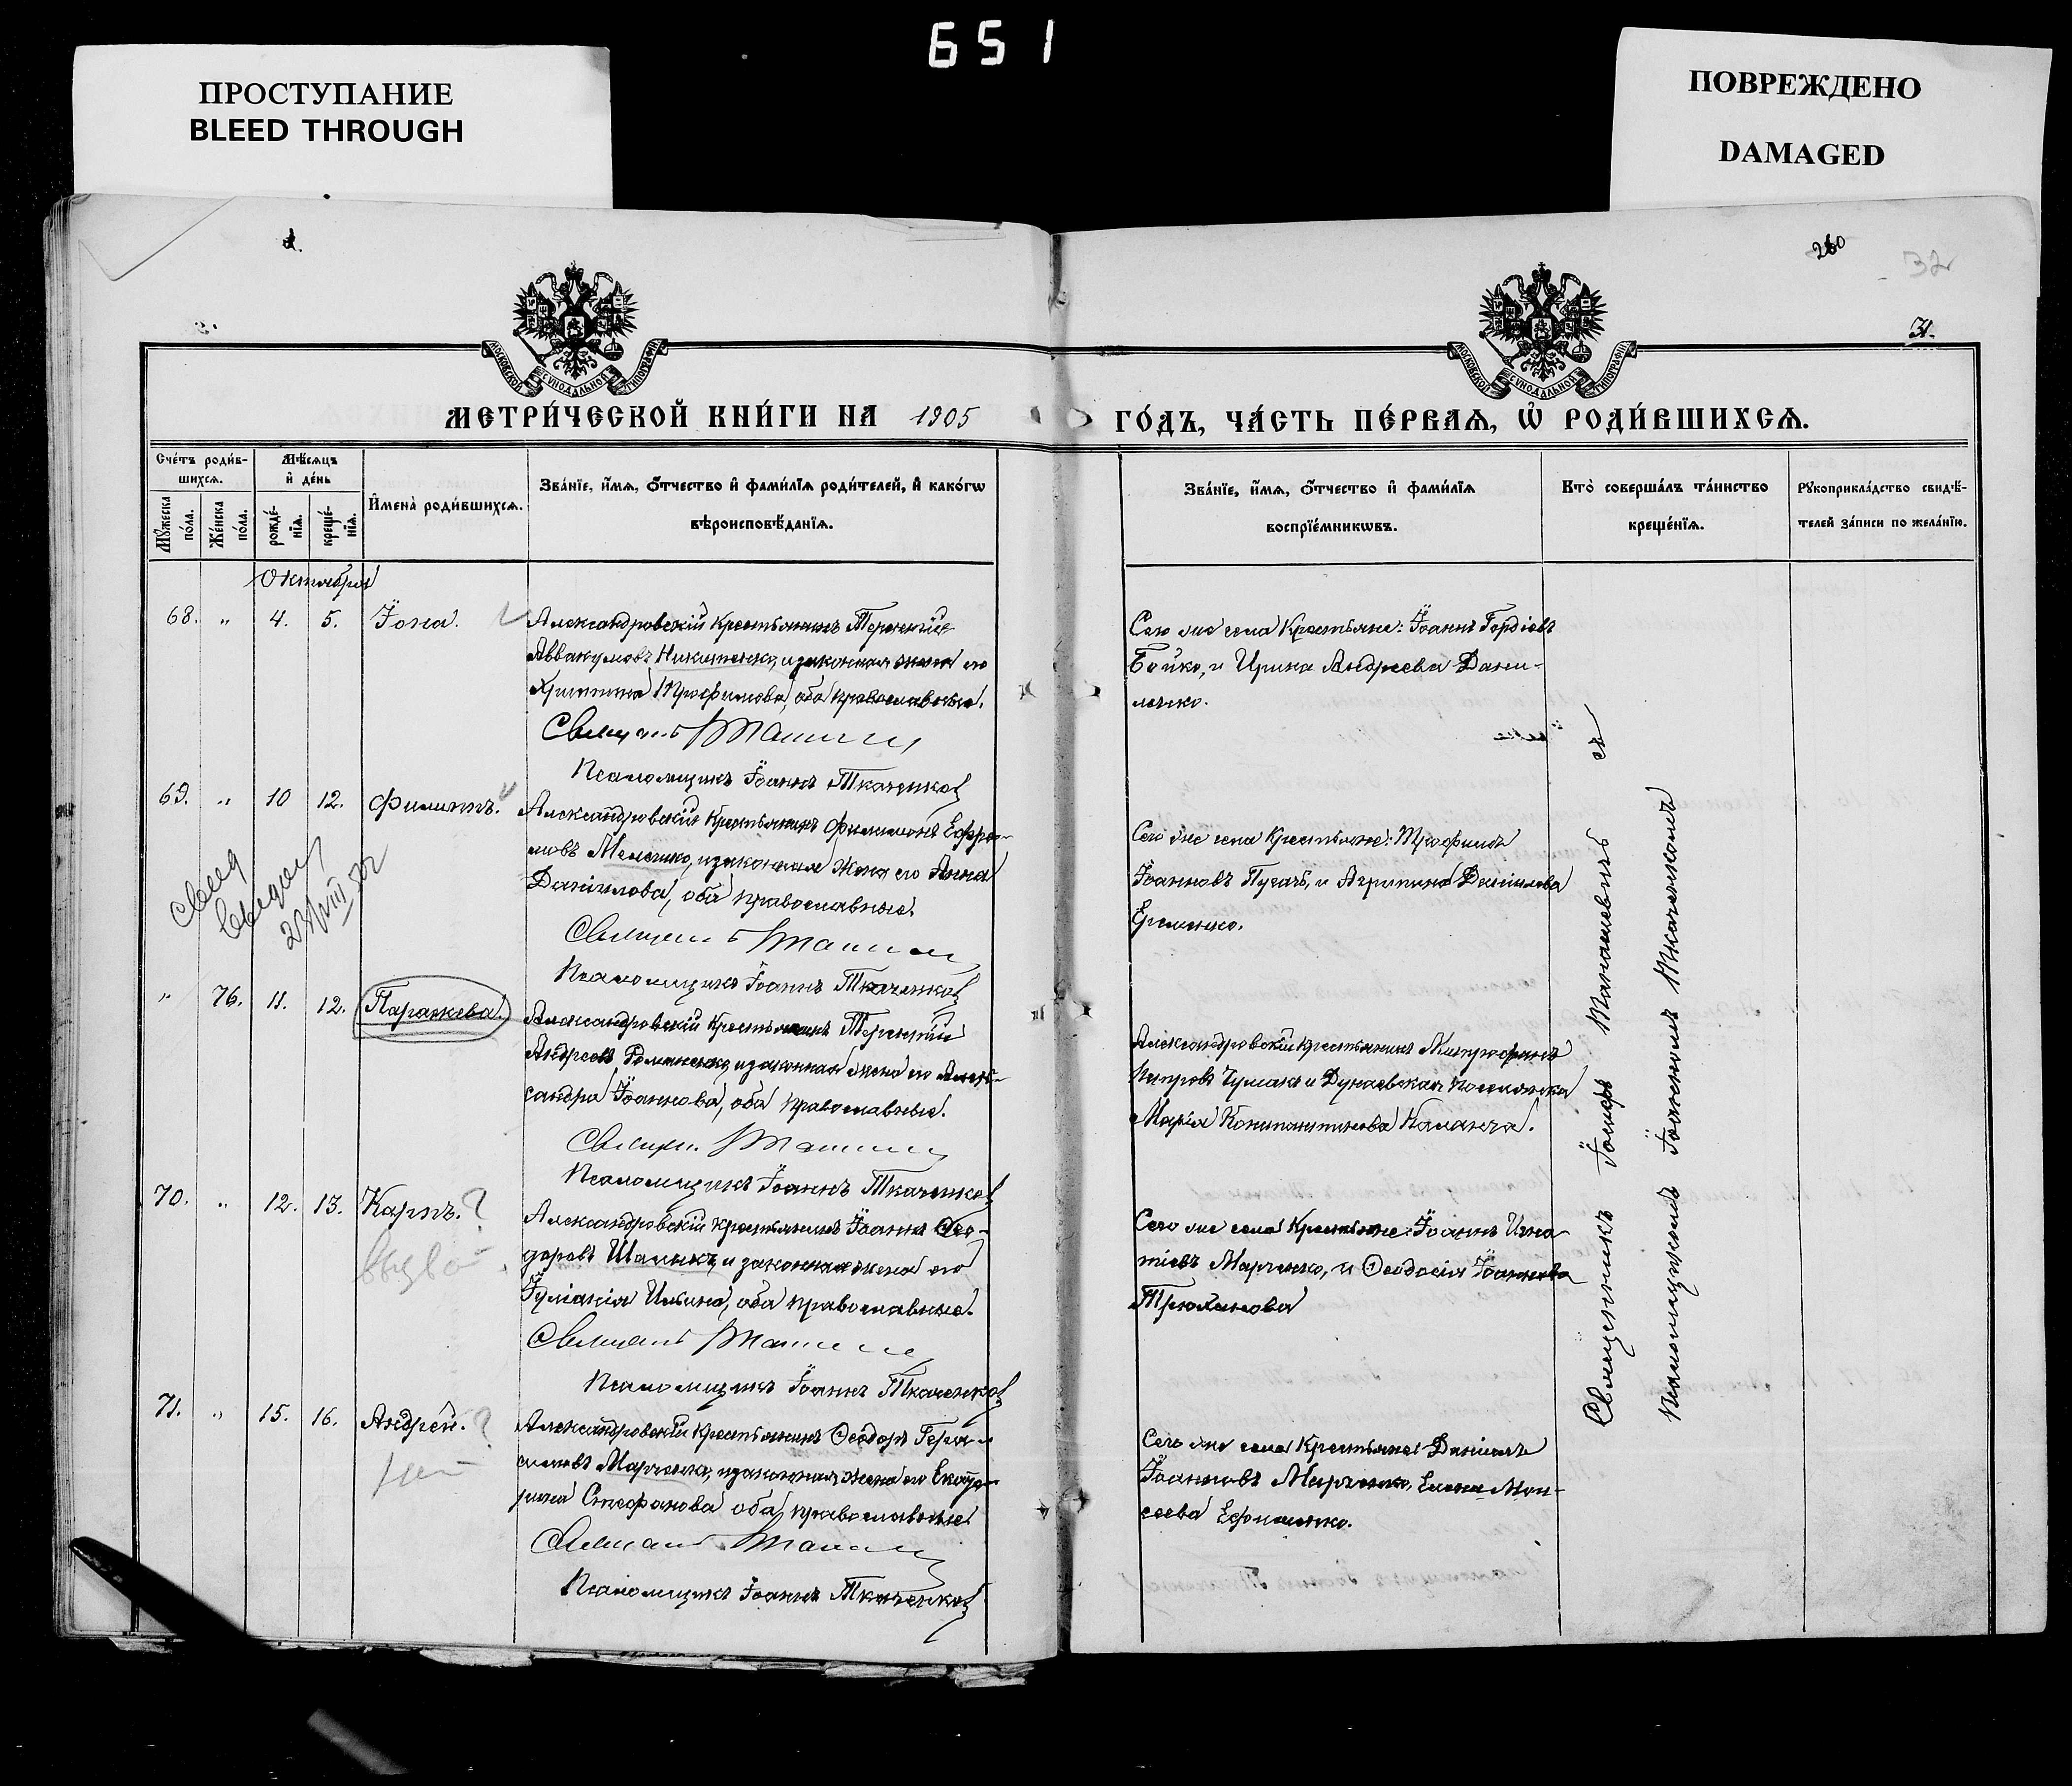 651
ПРОСТУПАНИЕ
BLEED THROUGH
ПОВРЕЖДЕНО
DAMAGED
260
32
31.
МОСКОВСКОЙ СѴНОДАЛЬНОЙ ТИПОГРАФІИ
МОСКОВСКОЙ СѴНОДАЛЬНОЙ ТИПОГРАФІИ
МЕТРИ́ЧЕСКОЙ КНИ́ГИ НА 1905 ГО́ДЪ, ЧА́СТЬ ПЕ́РВАѦ, Ѡ҆ РОДИ́ВШИХСѦ.
Сче́тъ роди́в-
шихсѧ.
Мѣ́сѧцъ
и҆ де́нь
Мꙋ́жеска
по́ла.
Же́нска
по́ла.
рожде́-
нїѧ.
креще́-
нїѧ.
И҆мена̀ роди́вшихсѧ.
Зва́нїе, и҆́мѧ, ѻ҆́тчество и҆ фами́лїѧ роди́телей, и҆ како́гѡ
вѣроисповѣ́данїѧ.
Зва́нїе, и҆́мѧ, ѻ҆́тчество и҆ фами́лїѧ
воспрїе́мникѡвъ.
Кто̀ соверша́лъ та́инство
креще́нїѧ.
Рꙋкоприкла́дство свидѣ́-
телей за́писи по жела́нїю.
Октября
68. " 4. 5. Іона.
Александровскій Крестьянинъ Терентій
Аввакумовъ Никитенко, и законная жена его
Христина Трофимова, оба православные.
Священ
Псаломщикъ Іоаннъ Ткаченков
Сего же села Крестьяне: Іоаннъ Гордіевъ
Бойко, и Ирина Андреева Дани-
ленко.
69. " 10 12. Филиппъ.
Александровскій Крестьянинъ Филимонъ Ефре-
мовъ Меленко, и законная жена его Анна
Даніилова, оба православные.
Священ
Псаломщикъ Іоаннъ Ткаченков
Сего же села Крестьяне: Трофимъ
Іоанновъ Пугачъ, и Агрипина Даніилова
Еременко.
" 76. 11. 12. Параскева.
Александровскій Крестьянинъ Терентій
Андреевъ Романенко, и законная жена его Алек-
сандра Іоаннова, оба православные.
Священ.
Псаломщикъ Іоаннъ Ткаченков
Александровскій крестьянинъ Митрофанъ
Петровъ Чумакъ и Дунаевская поселянка
Марія Константинова Каланча.
70. " 12. 13. Карпъ. ?
Александровскій крестьянинъ Іоаннъ Ѳео-
доровъ Шалыхъ, и законная жена его
Іуліанія Ильина, оба православные.
Священ
Псаломщикъ Іоаннъ Ткаченков
Сего же села Крестьяне: Іоаннъ Игна-
тіевъ Марченко, и Ѳеодосія Іоаннова
Трюханова
71. " 15. 16. Андрей. ?
Александровскій Крестьянинъ Ѳеодоръ Гера-
симовъ Марченко, и законная жена его Екате-
рина Стефанова оба православные.
Священ
Псаломщикъ Іоаннъ Ткаченков
Сего же села Крестьяне: Даніилъ
Іоанновъ Марченко, Елена Мои-
сеева Ефименко.
Священникъ Іосифъ съ
Псаломщикомъ Іоанномъ Ткаченковомъ